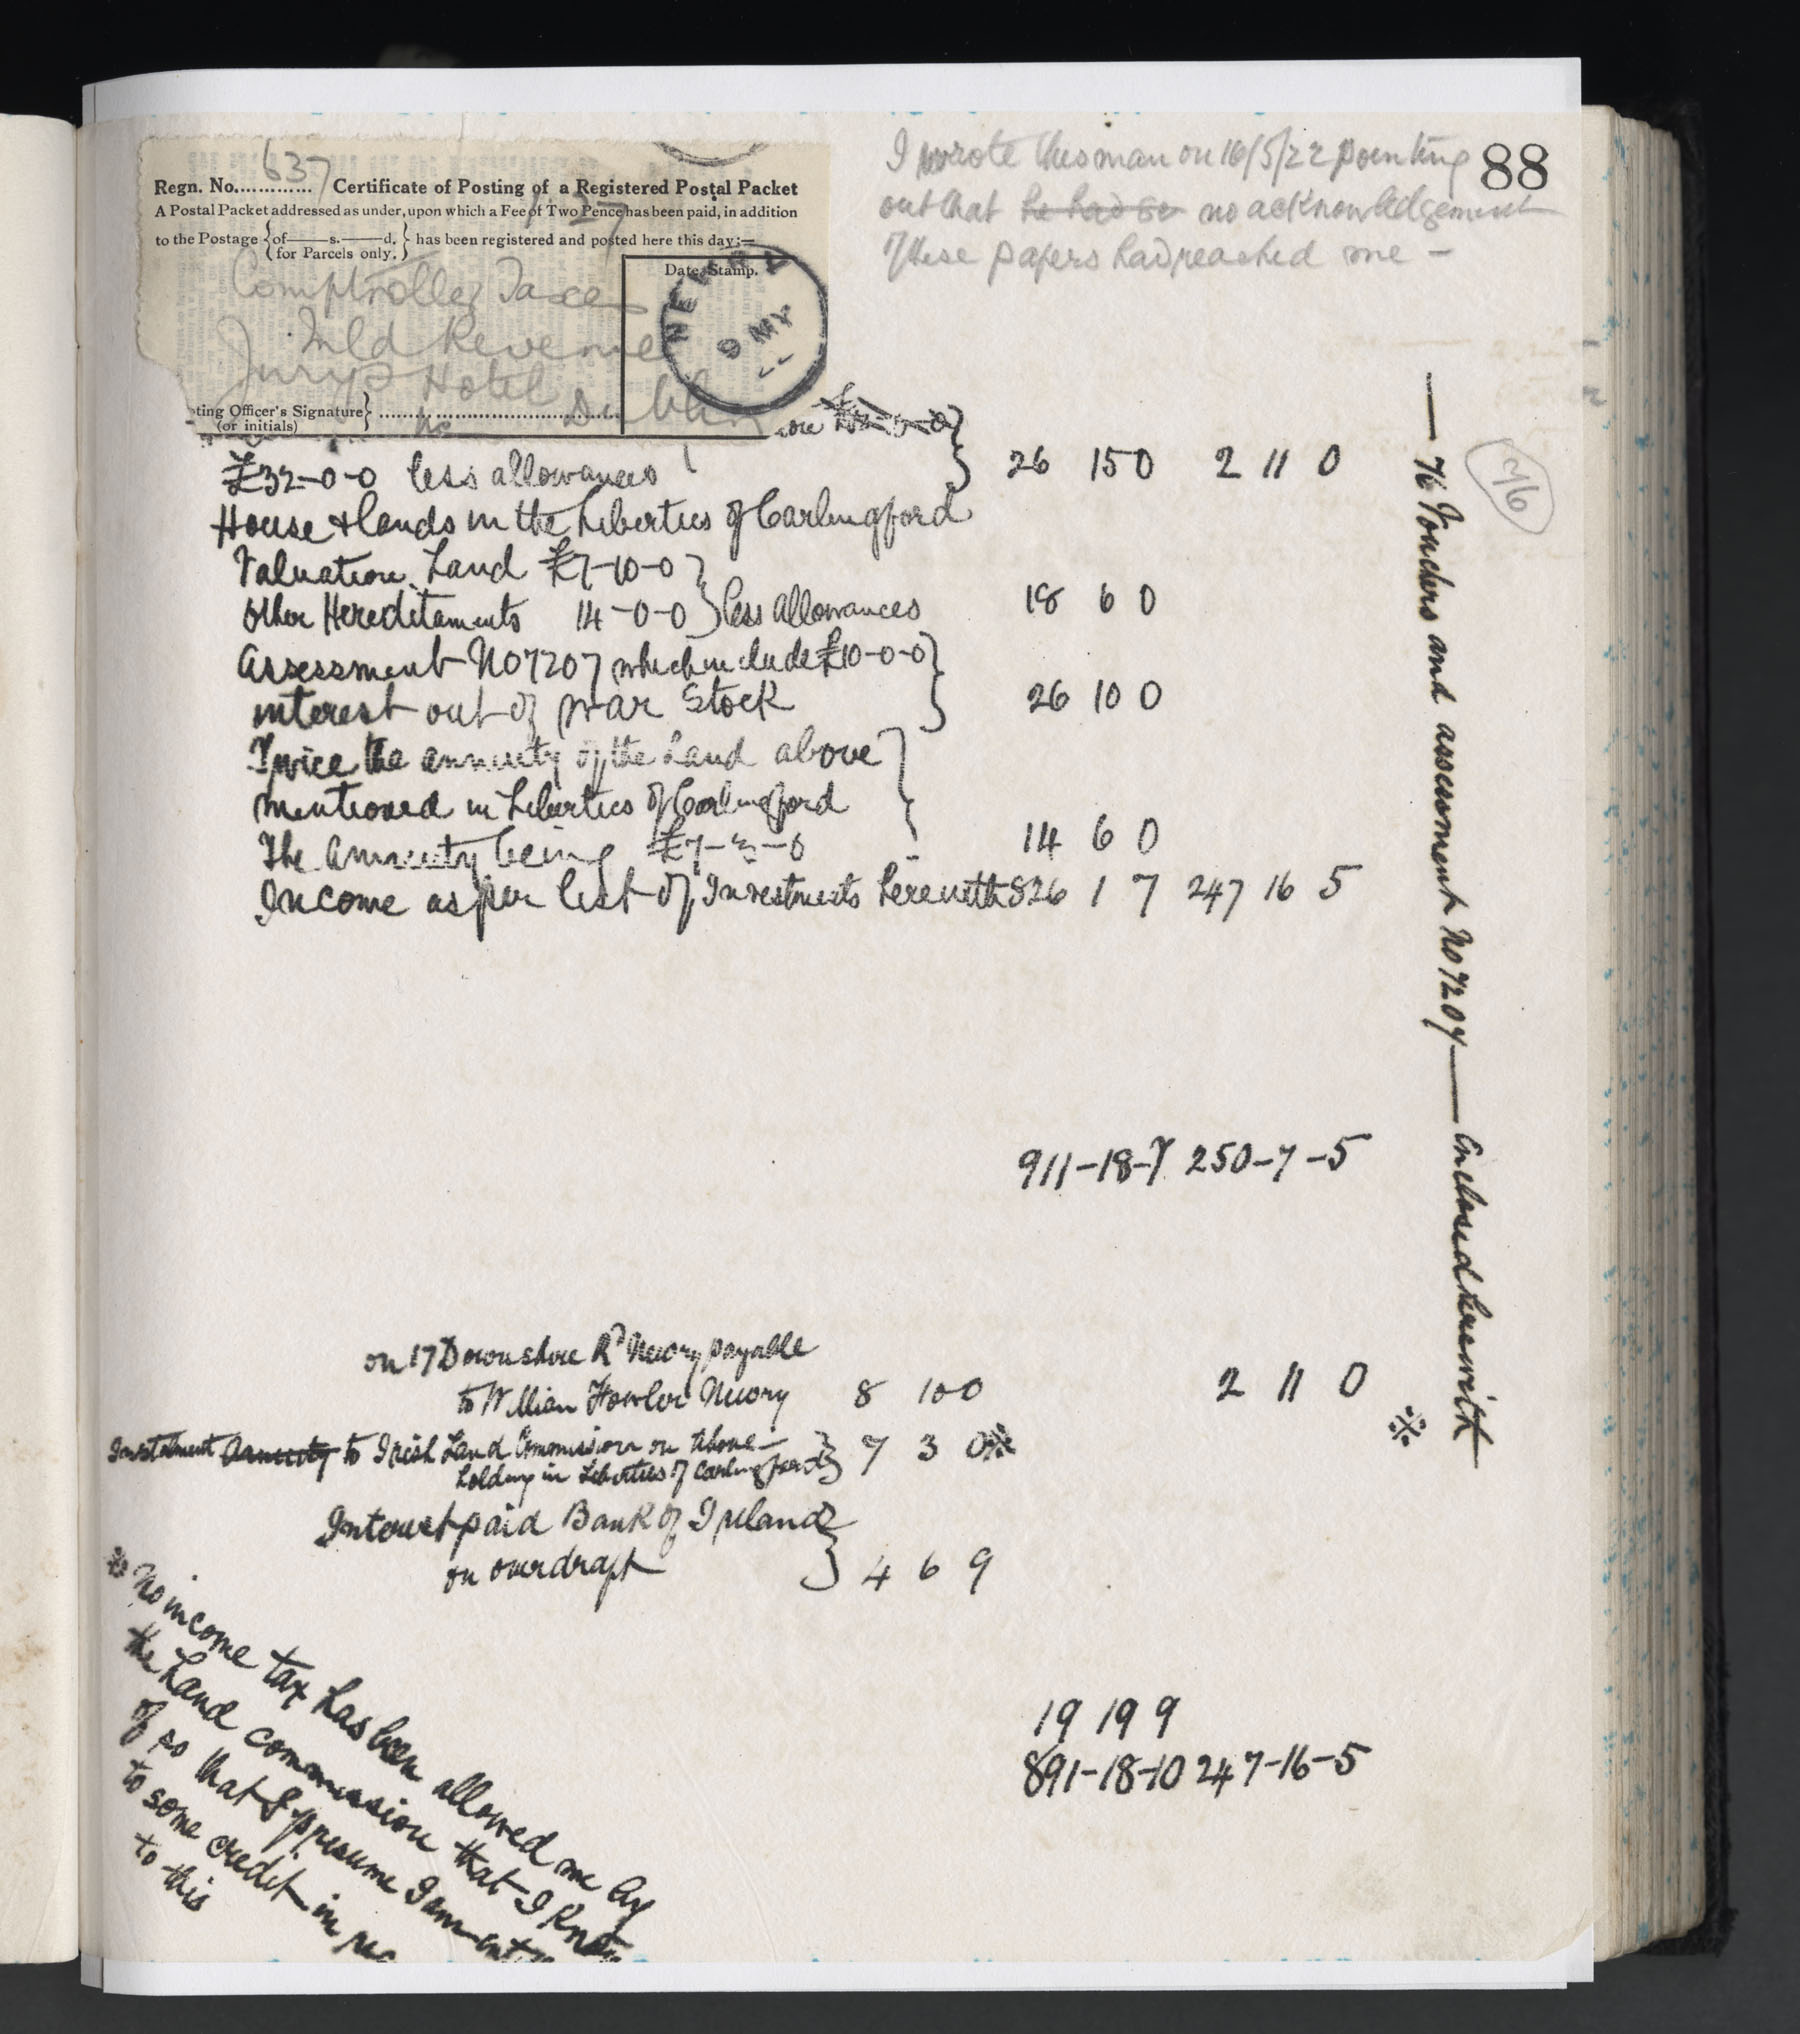 88
I wrote this man on 16/5/22 pointing
out that he had se no acknowledgement
of these papers had reached me —
637
Regn. No............. Certificate of Posting of a Registered Postal Packet
A Postal Packet addressed as under, upon which a Fee of Two Pence has been paid, in addition
to the Postage { of——s.——d. } has been registered and posted here this day:—
(for Parcels only.)
Date Stamp.
Comptroller Taxes
Inld Revenue
Jurys Hotel
Dublin
NEWRY
9 MY
ting Officer's Signature } ........................
(or initials)
£32-0-0 less allowances } 26 15 0 2 11 0
House & lands in the Liberties of Carlingford
Valuation. Land £7-10-0 }
Other Hereditaments 14-0-0 } less allowances 18 6 0
Assessment No 7207 which include £10-0-0 }
interest out of war Stock } 26 10 0
Twice the annuity of the Land above }
mentioned in Liberties of Carlingford }
The annuity being £7-3-0 14 6 0
Income as per list of Investments herewith 826 1 7 247 16 5
911-18-7 250-7-5
on 17 Downshire Rd Newry payable
to William Fowler Newry 8 10 0 2 11 0
Instalment Annuity to Irish Land Commission on above } 7 3 0 ※
holding in Liberties of Carlingford }
※
Interest paid Bank of Ireland }
on overdraft } 4 6 9
19 19 9
891-18-10 247-16-5
※ No income tax has been allowed me by
the Land commission that I know
of so that I presume I am
to some credit in
to this
— 76 Vouchers and assessment No 7207 — Enclosed herewith
76